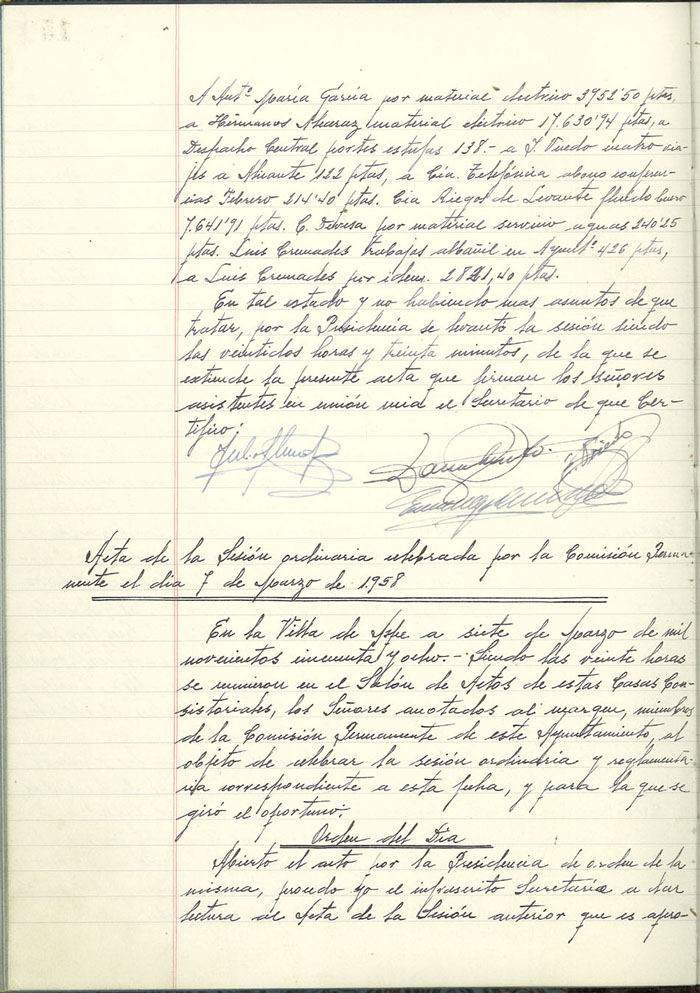 A Antº María García por material electrico 3952'50 ptas,
a Hermanos Alcaraz material electrico 17.630'94 ptas, a
Despacho Central portes estufas 138.- a J. Vicedo cuatro via-
jes a Alicante 122 ptas, a Cía. Telefónica abono conferen-
cias Febrero 214'40 ptas. Cia Riegos de Levante fluido Enero
7.641'91 ptas. C. Devesa por material servicio aguas 240'25
ptas. Luis Cremades trabajos albañil en Ayuntº 426 ptas,
a Luis Cremades por idem. 2821,40 ptas.
En tal estado y no habiendo mas asuntos de que
tratar, por la Presidencia se levantó la sesión siendo
las veintidos horas y treinta minutos, de la que se
extiende la presente acta que firman los señores
asistentes en unión mia el Secretario de que Cer-
tifico:
Acta de la Sesión ordinaria celebrada por la Comisión Perma-
nente el dia 7 de Marzo de 1958
En la Villa de Aspe a siete de Marzo de mil
novecientos cincuenta y ocho.- Siendo las veinte horas
se reunieron en el Salón de Actos de estas Casas Con-
sistoriales, los Señores anotados al margen, miembros
de la Comisión Permanente de este Ayuntamiento, al
objeto de celebrar la sesión ordinaria y reglamenta-
ria correspondiente a esta fecha, y para la que se
giró el oportuno:
Orden del Dia
Abierto el acto por la Presidencia de orden de la
misma, procedo yo el infrascrito Secretario a dar
lectura al Acta de la Sesión anterior que es apro-